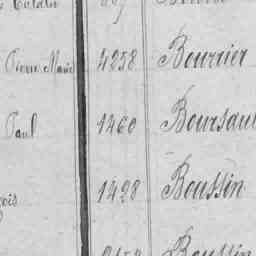 Pierre Marie 4258 Bourrier
Paul 1460 Boursaul
1428 Boussin
Boussin